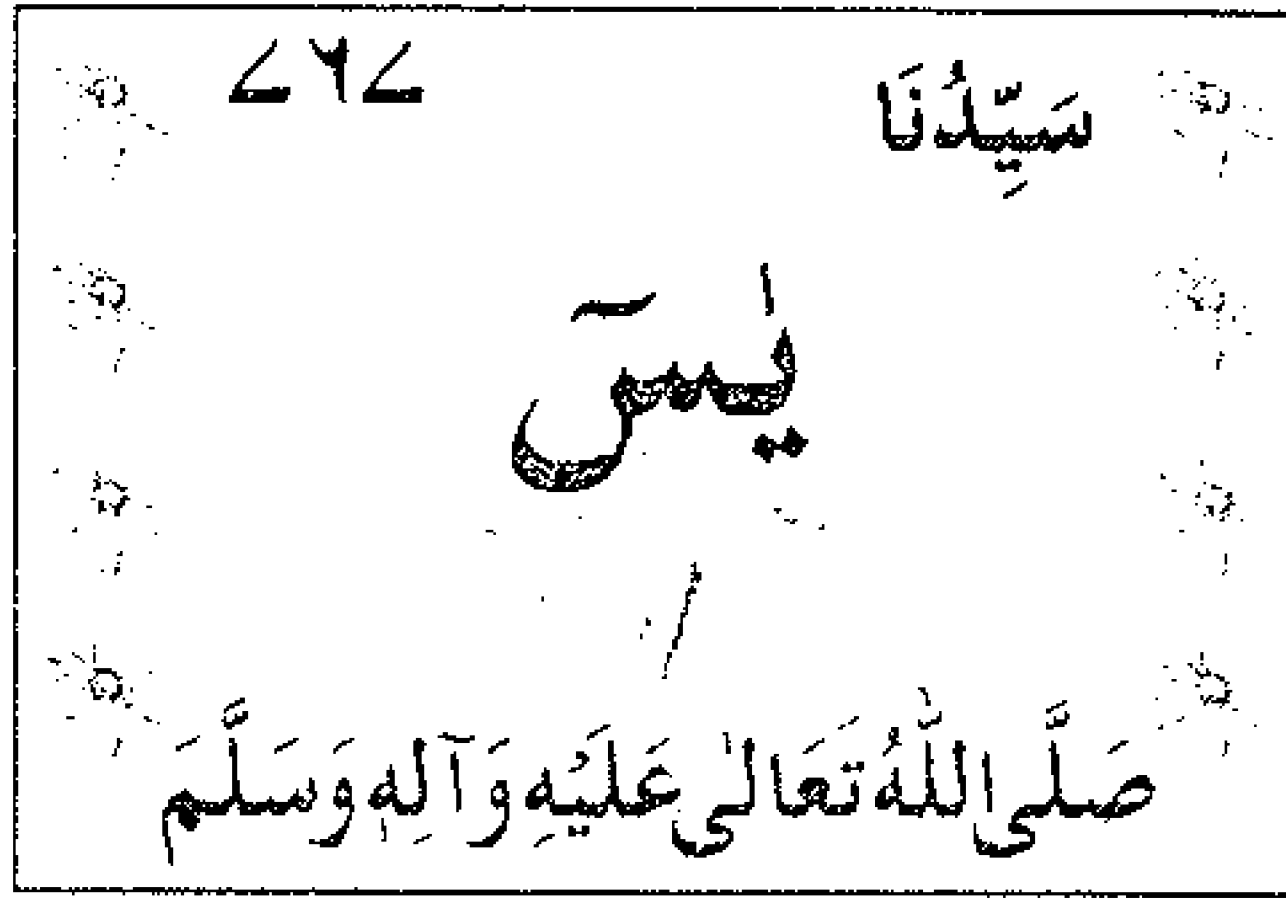 سَيِّدُنَا ۷۶۷
يٰسٓ
صَلَّى اللّٰهُ تَعَالٰى عَلَيْهِ وَآلِهٖ وَسَلَّمَ